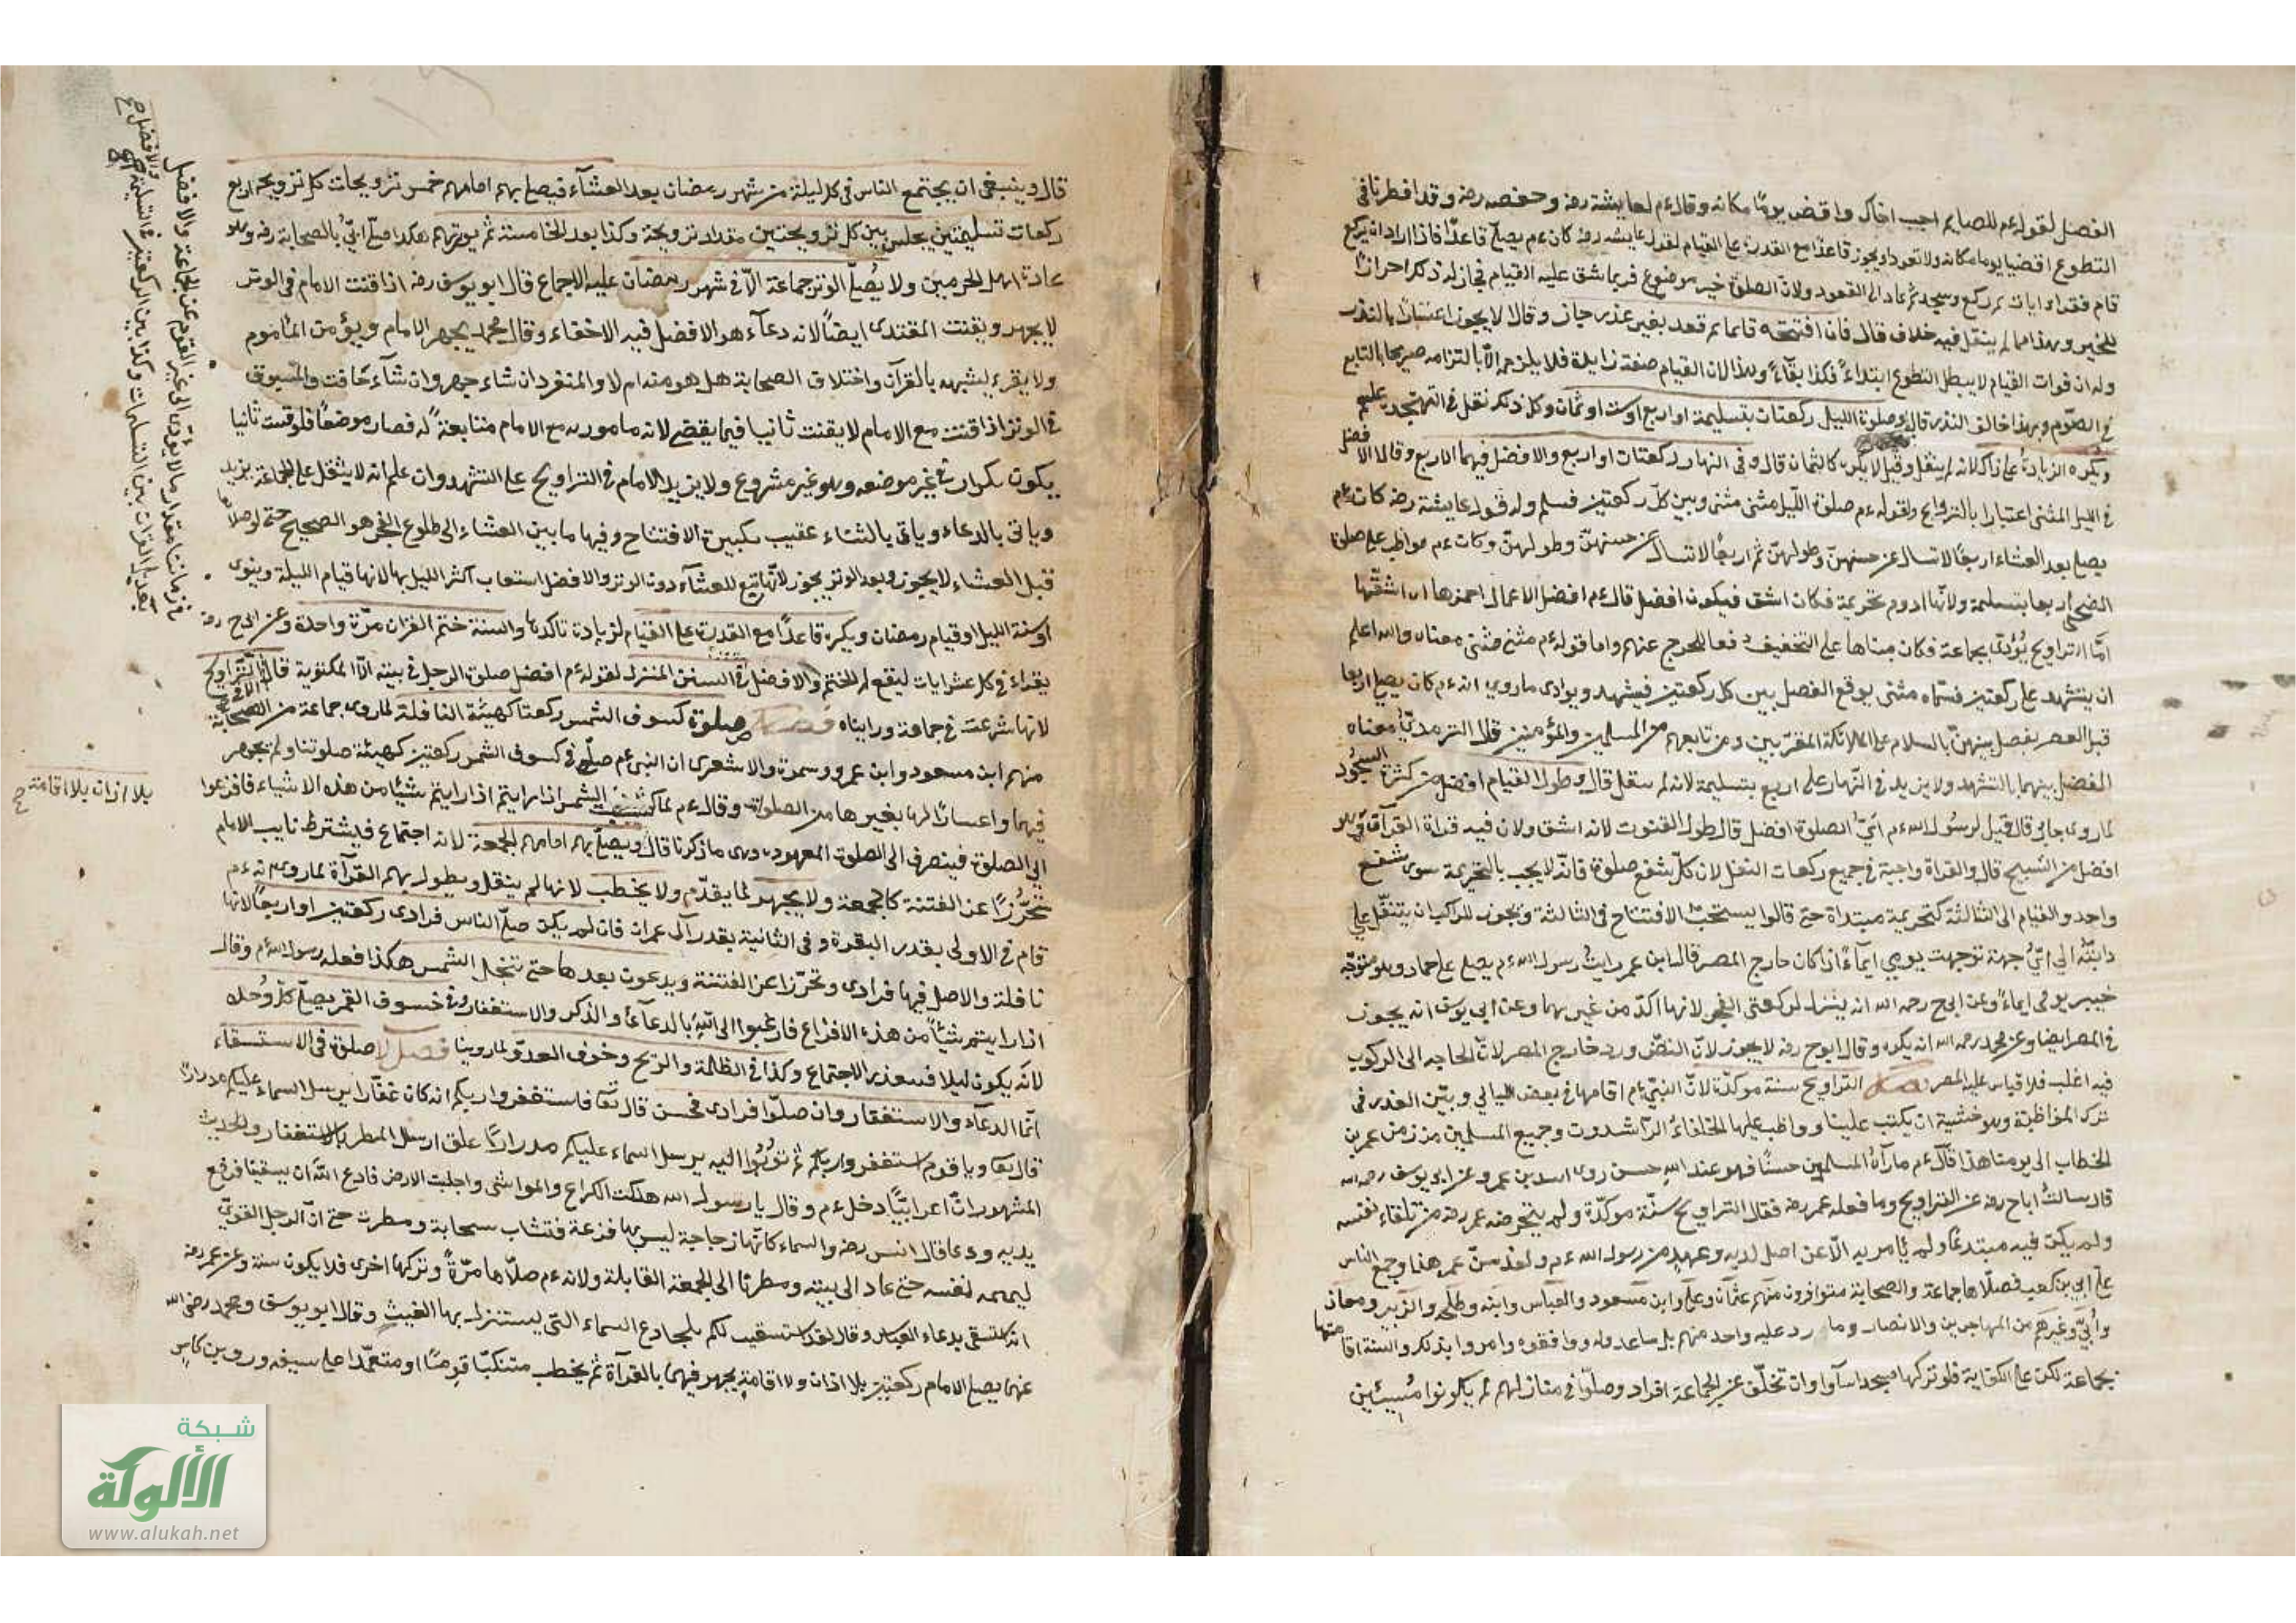 الفصل لقوله ءم للصايم اجب اخاك واقض يوما مكانه وقال ءم لعايشة رضه وحفصه رضه وقد افطرتا في
التطوع اقضيا يوما مكانه ولا تعودا ويجوز قاعدا مع القدرة على القيام لقول عايشه رضه كان ءم يصلي قاعدا فاذا اراد ان يركع
قام فقراء ايات ثم ركع وسجد ثم عاد الى القعود ولان الصلوة خير موضوع فربما شق عليه القيام فجاز له ذلك احرازا
للخير وهذا مما لم ينقل فيه خلاف قال فان افتتحه قائما ثم قعد بغير عذر جاز وقالا لا يجوز اعتبارا بالنذر
وله ان فوات القيام لا يبطل التطوع ابتداء فكذا بقاء وهذا لان القيام صفة زايدة فلا يلزمه الا بالتزامه صريحا بالتتابع
في الصوم وبهذا خالف النذر قال وصلوة الليل ركعتان بتسليمة او اربع او ست او ثمان وكل ذلك نقل في التهجد
ويكره الزيادة على ذلك لانه لم ينقل وقيل لا يكره كالثمان قال وفي النهار ركعتان او اربع والافضل فيهما الاربع وقالا الافضل
في الليل المثنى اعتبارا بالتراويح ولقوله ءم صلوة الليل مثنى مثنى وبين كل ركعتين فسلم وله قول عايشة رضه كان ءم
يصلي بعد العشاء اربعا لا تسال عن حسنهن وطولهن ثم اربعا لا تسال عن حسنهن وطولهن وكان ءم يواظب على صلوة
الضحى اربعا بتسليمة ولانها ادوم تحريمة فكان اشق فيكون افضل قال ءم افضل الاعمال احمزها اى اشقها
اما التراويح يؤدى بجماعة فكان مبناها على التخفيف دفعا للحرج عنهم واما قوله ءم مثنى مثنى معناه والله اعلم
ان يتشهد على ركعتين فسماه مثنى يوقع الفصل بين كل ركعتين فيشهد ويوادى ماروي انه ءم كان يصلي اربعا
قبل العصر يفصل بينهن بالسلام على الملائكة المقربين ومن تابعهم من المسلمين والمؤمنين قال الترمدي معناه
الفصل بينهما بالتشهد ولا يزيد في النهار على اربع بتسليمة لانه لم ينقل قال وطول القيام افضل من كثرة السجود
لما روى جابر قال قيل لرسول الله ءم اي الصلوة افضل قال طول القنوت لانه اشق ولان فيه قراة القرآن وهو
افضل من التسبيح قال والقراة واجبة في جميع ركعات النفل لان كل شفع صلوة فانه لا يجب بالتحريمة سوى شفع
واحد والقيام الى الثالثة كتحريمة مبتداة حتى قالوا يستحب الافتتاح في الثالثة ويجوز للراكب ان يتنفل على
دابته الى اي جهة توجهت يومي ايماء اذا كان خارج المصر قال ابن عمر رايت رسول الله ءم يصلي على حمار وهو متوجه
خيبر يومى ايماء وعن ابي ح رحمه الله انه ينزل لركعتى الفجر لانها اكد من غيرهما وعن ابي يوسف انه يجوز
في المصر ايضا وعن محمد رحمه الله انه يكره وقال ابو ح رضه لا يجوز لان النص ورد خارج المصر لان الحاجه الى الركوب
فيه اغلب فلا قياس عليه المصر فصل التراويح سنة موكدة لان النبي ءم اقامها في بعض الليالي وبين العذر في
ترك المواظبة وهو خشية ان يكتب علينا وواظب عليها الخلفاء الراشدون وجميع المسلمين من زمن عمر بن
الخطاب الى يومنا هذا قال ءم ما رآه المسلمون حسنا فهو عند الله حسن روى اسد بن عمرو عن ابي يوسف رحمه الله
قال سالت اباح رضه عن التراويح وما فعله عمر رضه فقال التراويح سنة موكدة ولم يتخرصه عمر رضه من تلقاء نفسه
ولم يكن فيه مبتدعا ولم يامر به الا عن اصل لديه وعهد من رسول الله ءم ولقد سن عمر هذا وجمع الناس
على ابي بن كعب فصلاها جماعة والصحابة متوافرون منهم عثمان وعلي وابن مسعود والعباس وابنه وطلحه والزبير ومعاذ
وابي وغيرهم من المهاجرين والانصار وما رد عليه واحد منهم بل ساعدوه ووافقوه وامروا بذلك والسنة اقامتها
بجماعة لكن على الكفاية فلو تركها مسجد اساوا وان تخلف عن الجماعة افراد وصلوا في منازلهم لم يكونوا مسيئين
قال وينبغى ان يجتمع الناس في كل ليلة من شهر رمضان بعد العشاء فيصلي بهم امامهم خمس ترويحات كل ترويحة اربع
ركعات تسليمتين يجلس بين كل ترويحتين مقدار ترويحة وكذا بعد الخامسة ثم يوتر بهم هكذا صلى ابي بالصحابة رضه وهو
عادة اهل الحرمين ولا يصلى الوتر جماعة الا في شهر رمضان عليه الاجماع قال ابو يوسف رضه اذا قنت الامام في الوتر
لا يجهر ويقنت المقتدى ايضا لانه دعاء هو الافضل فيه الاخفاء وقال محمد يجهر الامام ويؤمن الماموم
ولا يقرء لشبهه بالقرآن واختلاف الصحابة هل هو منه ام لا والمنفرد ان شاء جهر وان شاء خافت والمسبوق
في الوتر اذا قنت مع الامام لا يقنت ثانيا فيما يقضى لانه مامور به مع الامام متابعة له فصار موضعا فلو قنت ثانيا
يكون تكرارا في غير موضعه وهو غير مشروع ولا يزيد الامام في التراويح على التشهد وان علم انه لا يثقل على الجماعة يزيد
وياتى بالدعاء وياتى بالثناء عقيب تكبيرة الافتتاح وفيها ما بين العشاء الى طلوع الفجر هو الصحيح حتى لو صلاها
قبل العشاء لا يجوز وبعد الوتر يجوز لانها تبع للعشاء دون الوتر والافضل استعاب اكثر الليل بها لانها قيام الليلة وينوى
او سنة الليل او قيام رمضان ويكره قاعدا مع القدرة على القيام لزيادة تاكدها والسنة ختم القران مرة واحدة وعن ابى ح رضه
يقراء في كل عشر ايات ليقع لهم الختم والافضل في السنن المنزل لقوله ءم افضل صلوة الرجل في بيته الا المكتوبة قال الا التراويح
لانها شرعت في جماعة ورايناه فصل صلوة كسوف الشمس ركعتا كهيئة النافلة لما روى جماعة من الصحابة
منهم ابن مسعود وابن عمرو وسمرة والاشعرى ان النبى ءم صلى في كسوف الشمس ركعتين كهيئة صلوتنا ولم يجهر
فيهما واعتبارا لها بغيرها من الصلوة وقال ءم لما كسفت الشمس اذا رايتم شيئا من هذه الاشياء فافزعوا
الى الصلوة فينصرف الى الصلوة المعهودة وهى ما ذكرنا قال ويصلي بهم امامهم الجمعة لانه اجتماع فيشترط نايب الامام
تحرزا عن الفتنة كالجمعة ولا يجهر لما يقدم ولا يخطب لانها لم ينقل ويطول بهم القرآة لما روى انه ءم
قام في الاولى بقدر البقرة وفى الثانية بقدر آل عمران فان لم يكن صلى الناس فرادى ركعتين او اربعا لانها
نافلة والاصل فيها فرادى وتحرزا عن الفتنة ويدعون بعدها حتى تنجلي الشمس هكذا فعله رسول الله ءم وقال
اذا رايتم شيئا من هذه الافزاع فارغبوا الى الله بالدعاء والذكر والاستغفار وفي خسوف القمر يصلي كل وحده
لانه يكون ليلا فيتعذر الاجتماع وكذا في الظلمة والريح وخوف العدو لما روينا فصل لا صلوة فى الاستسقاء
انما الدعاء والاستغفار وان صلوا فرادى فحسن قال تعا فاستغفروا ربكم انه كان غفارا يرسل السماء عليكم مدرارا
قال تعا ويا قوم استغفروا ربكم ثم توبوا اليه يرسل السماء عليكم مدرارا علق ارسال المطر بالاستغفار والحديث
المشهور ان اعرابيا دخل ءم وقال يا رسول الله هلكت الكراع والمواشى واجدبت الارض فادع الله ان يسقينا فرفع
يديه ودعا قال انس رضه والسماء كانها زجاجة ليس بها قزعة فنشاب سحابة ومطرت حتى ان الرجل القوى
ليهمه نفسه حتى عاد الى بيته ومطرنا الى الجمعة القابلة ولانه ءم صلاها مرة وتركها اخرى فلا يكون سنة وعن عمر رضه
انه استسقى بدعاء العباس وقال لقد استسقيت لكم بمجادع السماء التى يستنزل بها الغيث وقال ابو يوسف ومحمد رضى الله
عنهما يصلي الامام ركعتين بلا اذان ولا اقامة يجهر فيهما بالقرآة ثم يخطب متنكبا قوسا او متعمدا على سيفه وروى بن كاس
والافضل
في زماننا مقدار ما لا يؤدى الى تنفير القوم عن الجماعة والافضل
تعديل القراة بين التسليمات وكذا بين الركعتين في التسليمة
بلا اذان بلا اقامة
صح
شبكة
الألوكة
www.alukah.net